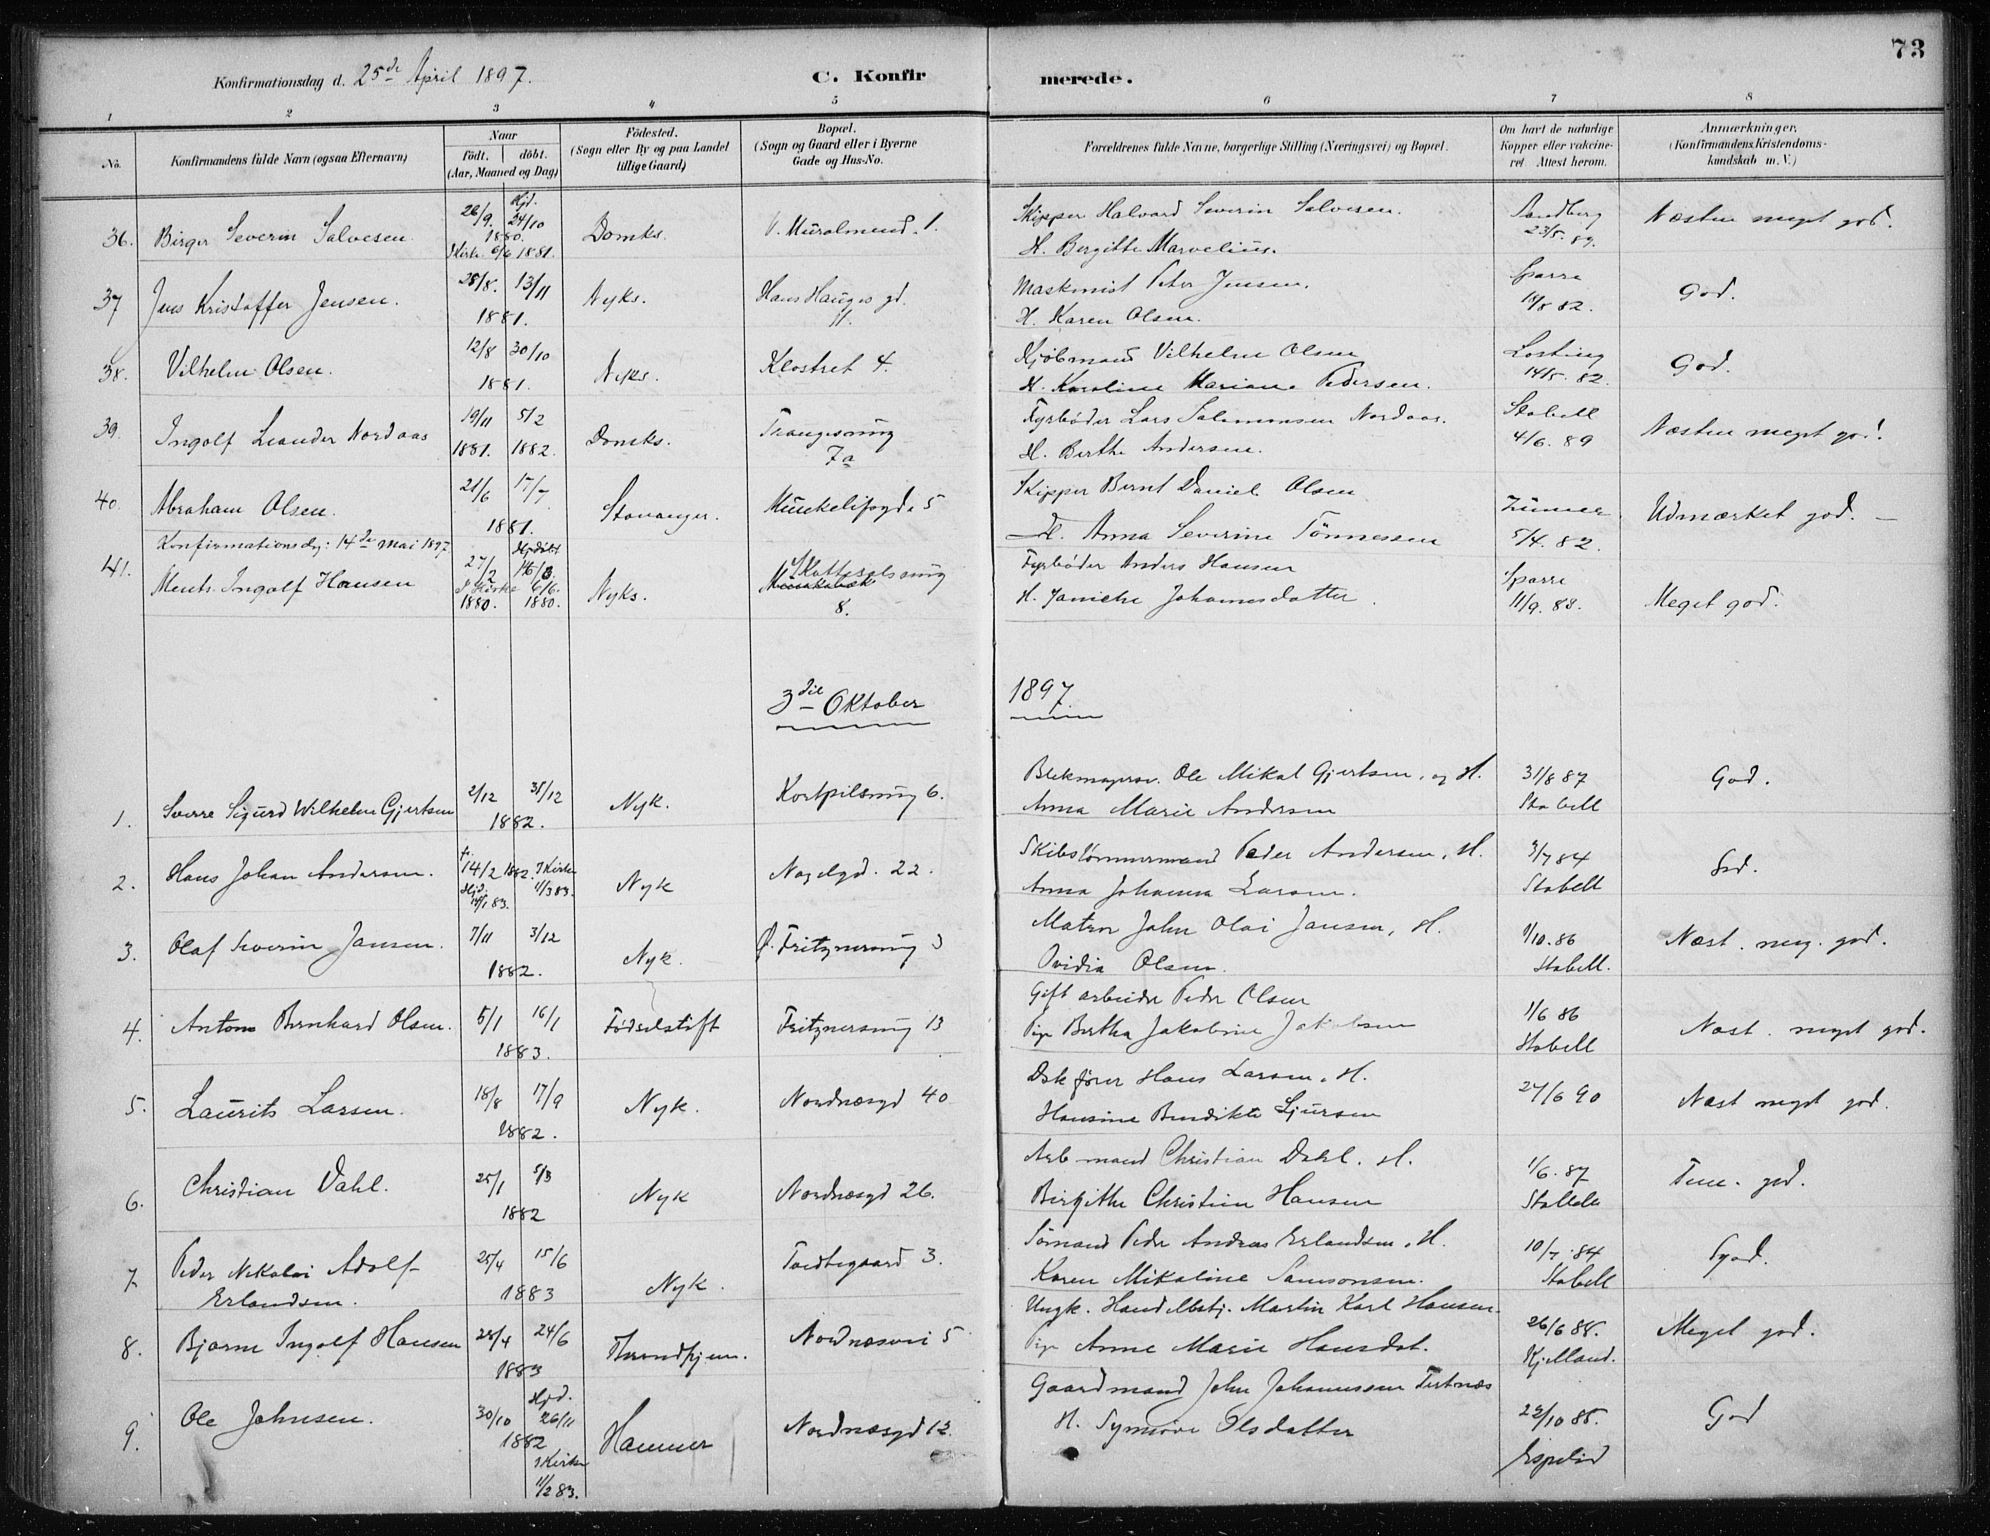 73
Konfirmationsdag d. 25de April 1897.
C. Konfirmerede.
1 2 3 4 5 6 7 8
No.
Konfirmandens fulde Navn (ogsaa Efternavn)
Naar
födt. döbt.
(Aar, Maaned og Dag)
Födested.
(Sogn eller By og paa Landet
tillige Gaard)
Bopæl.
(Sogn og Gaard eller i Byerne
Gade og Hus-No.
Forældrenes fulde Navne, borgerlige Stilling (Næringsvei) og Bopæl.
Om havt de naturlige
Kopper eller vakcine-
ret. Attest herom.
Anmærkninger.
(Konfirmandens Kristendoms-
kundskab m. V.)
36. Birger Severin Salvesen. 26/9 Hjd. 24/10 1880. I Kirke 6/6 1881. Domks. V. Muralmend. 1. Skipper Halvard Severin Salvesen. Sandberg Næsten meget god.
H. Bergitte Marvelius. 23/5. 89.
37 Jens Kristoffer Jensen. 28/8. 13/11 1881. Nyks. Hans Hauges gd. 11. Maskinist Peter Jensen. Sparre God.
H. Karen Olsen. 18/8 82.
38. Vilhelm Olsen. 12/8 30/10 1881. Nyks. Klostret 4. Kjøbmand Vilhelm Olsen Losting God.
H. Karoline Mariane Pedersen. 14/5. 82.
39. Ingolf Leander Nordaas 19/11 1881. 5/2 1882. Domks. Trangesmug 7a Fyrbøder Lars Salomonsen Nordaas. Stabell Næsten meget god.
H. Berthe Andersen. 4/6. 89
40. Abraham Olsen. 21/6 17/7 1881. Stavanger. Munkelivgd. 5 Skipper Bernt Daniel Olsen Udmærket god. —
H. Anna Severine Tönnessen 5/4. 82.
Konfirmationsdg: 14de Mai 1897
41. Ments Ingolf Hansen 27/2 1880. Hjdöbt I Kirke 6/6. 1880. Nyks. Skottesalsmug 8. Fyrbøder Anders Hansen Sparre Meget god.
H. Janicke Johannesdatter. 11/9. 88.
3die Oktober 1897
1. Sverre Sigurd Wilhelm Gjertsen 2/12 31/12 1882. Nyk. Kortpilsmug 6. Blekmagersv. Ole Mikal Gjertsen, og H. 31/8 87 God.
Anna Marie Andersen Stabell
2. Hans Johan Andersen. f. 14/2 1882. I Kirke 11/3 83. Hjd. Nyk Nagelgd. 22. Skibstömmermand Peder Andersen, H. 3/7 84 God.
Anna Johanna Larsen. Stabell
3. Olaf Severin Jansen. 7/11 3/12 1882. Nyk. Ø. Fritznersmug 3 Matros John Olai Jansen, H. 1/10. 86 Næst. meg. god.
Ovidia Olsen. Stabell.
4. Anton Bernhard Olsen. 5/1 16/1 1883. Fødselstift Fritznersmug 13 Gift arbeider Peder Olsen 1/6 86 Næst. meget god.
Pige Bertha Jakobine Jakobsen Stabell
5. Laurits Larsen. 18/8 17/9 1882. Nyk. Nordnæsgd 40 Dskfører Hans Larsen. H. 27/6 90 Næst meget god.
Hansine Bendikte Sjursen
6. Christian Dahl. 25/1 5/3 1882 Nyk Nordnæsgd 26. Arb mand Christian Dahl. H. 1/6. 87 Tem. god.
Birgithe Christine Hansen Stabell
7. Peder Nikolai Adolf Erlandsen. 25/4 15/6 1883 Nyk. Toldtegaard 3. Sømand Peder Andreas Erlandsen. H. 10/7. 84 God.
Karen Mikaline Samsonsen. Stabell
8. Bjarne Ingolf Hansen 28/4 24/6 1883 Throndhjem. Nordnæsvei 5 Ungk. Handelbetj. Martin Karl Hansen 26/6 88. Meget god.
Pige Anne Marie Hansdat. Kjelland.
9. Ole Johnsen. 30/10 Hjd. 26/11 1882 I Kirke 11/2 83. Hammer Nordnæsgd 12. Gaardmand John Johannessen Tertnæs 22/10 85. God
H. Synnöve Olsdatter Espelid